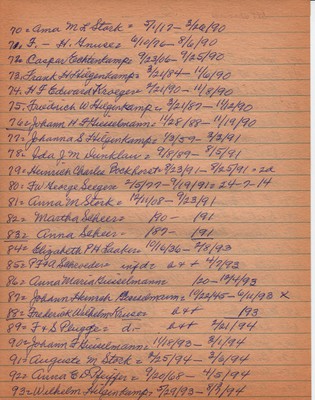 70 = Anna M L Stork = 3/1/17 - 3/20/90
71. F. - H. Gnuse = 6/10/76 - 8/6/90
72. Casper Echtenkamp = 9/23/06 - 9/25/90
73. Frank H Hilgenkamp = 3/21/84 - 11/6/90
74. H F Edward Kroeger = 2/21/90 - 11/8/90
75. Fredrick W Hilgenkamp = 2/21/87 - 11/12/90
76 = Johann H F Giesselmann = 11/28/88 - 11/19/90
77. Johanna S Hilgenkamp = 1/3/59 - 3/2/91
78. Ida J M Dunklau = 9/8/89 - 8/5/91
79 = Heinrich Charles Bockhorst 8/23/91 - 8/25/91 = 2d
80 = Fr George Seeger = 2/5/77 - 9/19/91 = 24-7-14
81 = Anna M Stork = 12/11/08 - 9/23/91
82 = Martha Scheer = /90 - /91
83 = Anna Scheer = /89 - /91
84 = Elizabeth P H Laaker = 10/16/36 - 2/8/93
85 = P F A Schroeder = infd = a++ 4/2/93
86 = Anna Maria Giesselmann /20 - 12/4/93
87 = Johann Heinrich Giesselmann = 10/22/45 - 4/11/93 x
88 = Frederick Wilhelm Kruse a++ /93
89 = F + S Plugge = d - a++ 2/21/94
90 = Johann F Giesselmann = 11/18/93 - 3/1/94
91 = Auguste M Stork = 2/25/91 - 3/6/94
92 = Anna C D Pfeiffer = 9/20/68 - 4/5/94
93 = Wilhelm Hilgenkamp = 5/29/93 - 8/13/94